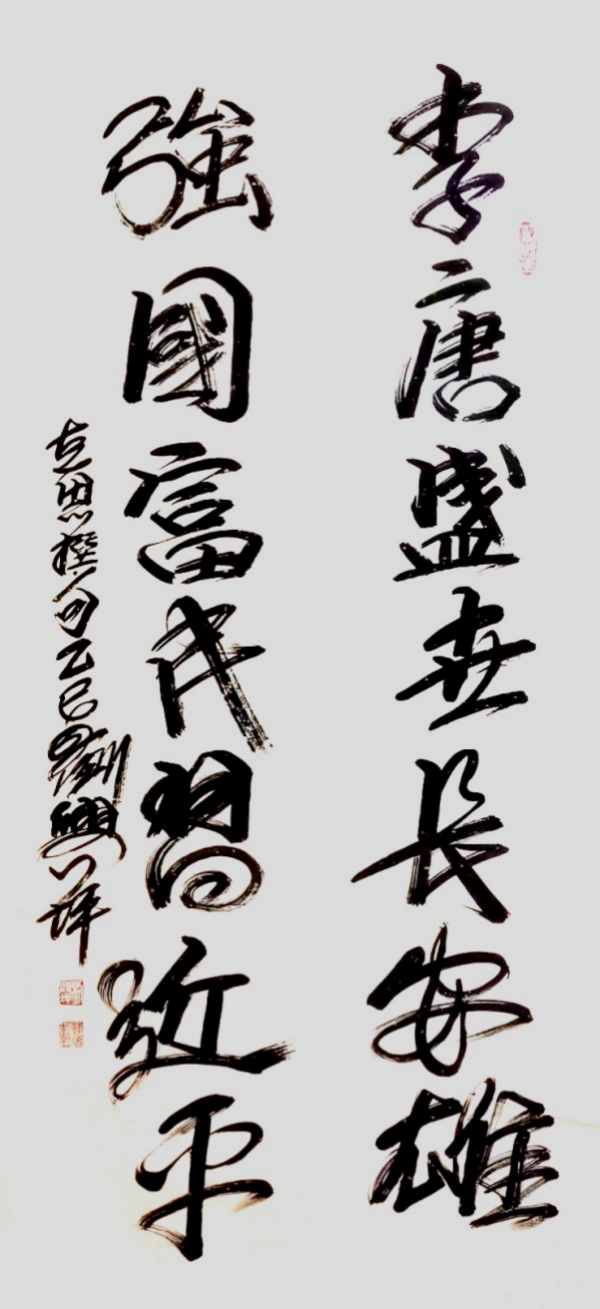 李唐盛世長安雄
強國富民習近平
左思撰句乙巳劉興萍